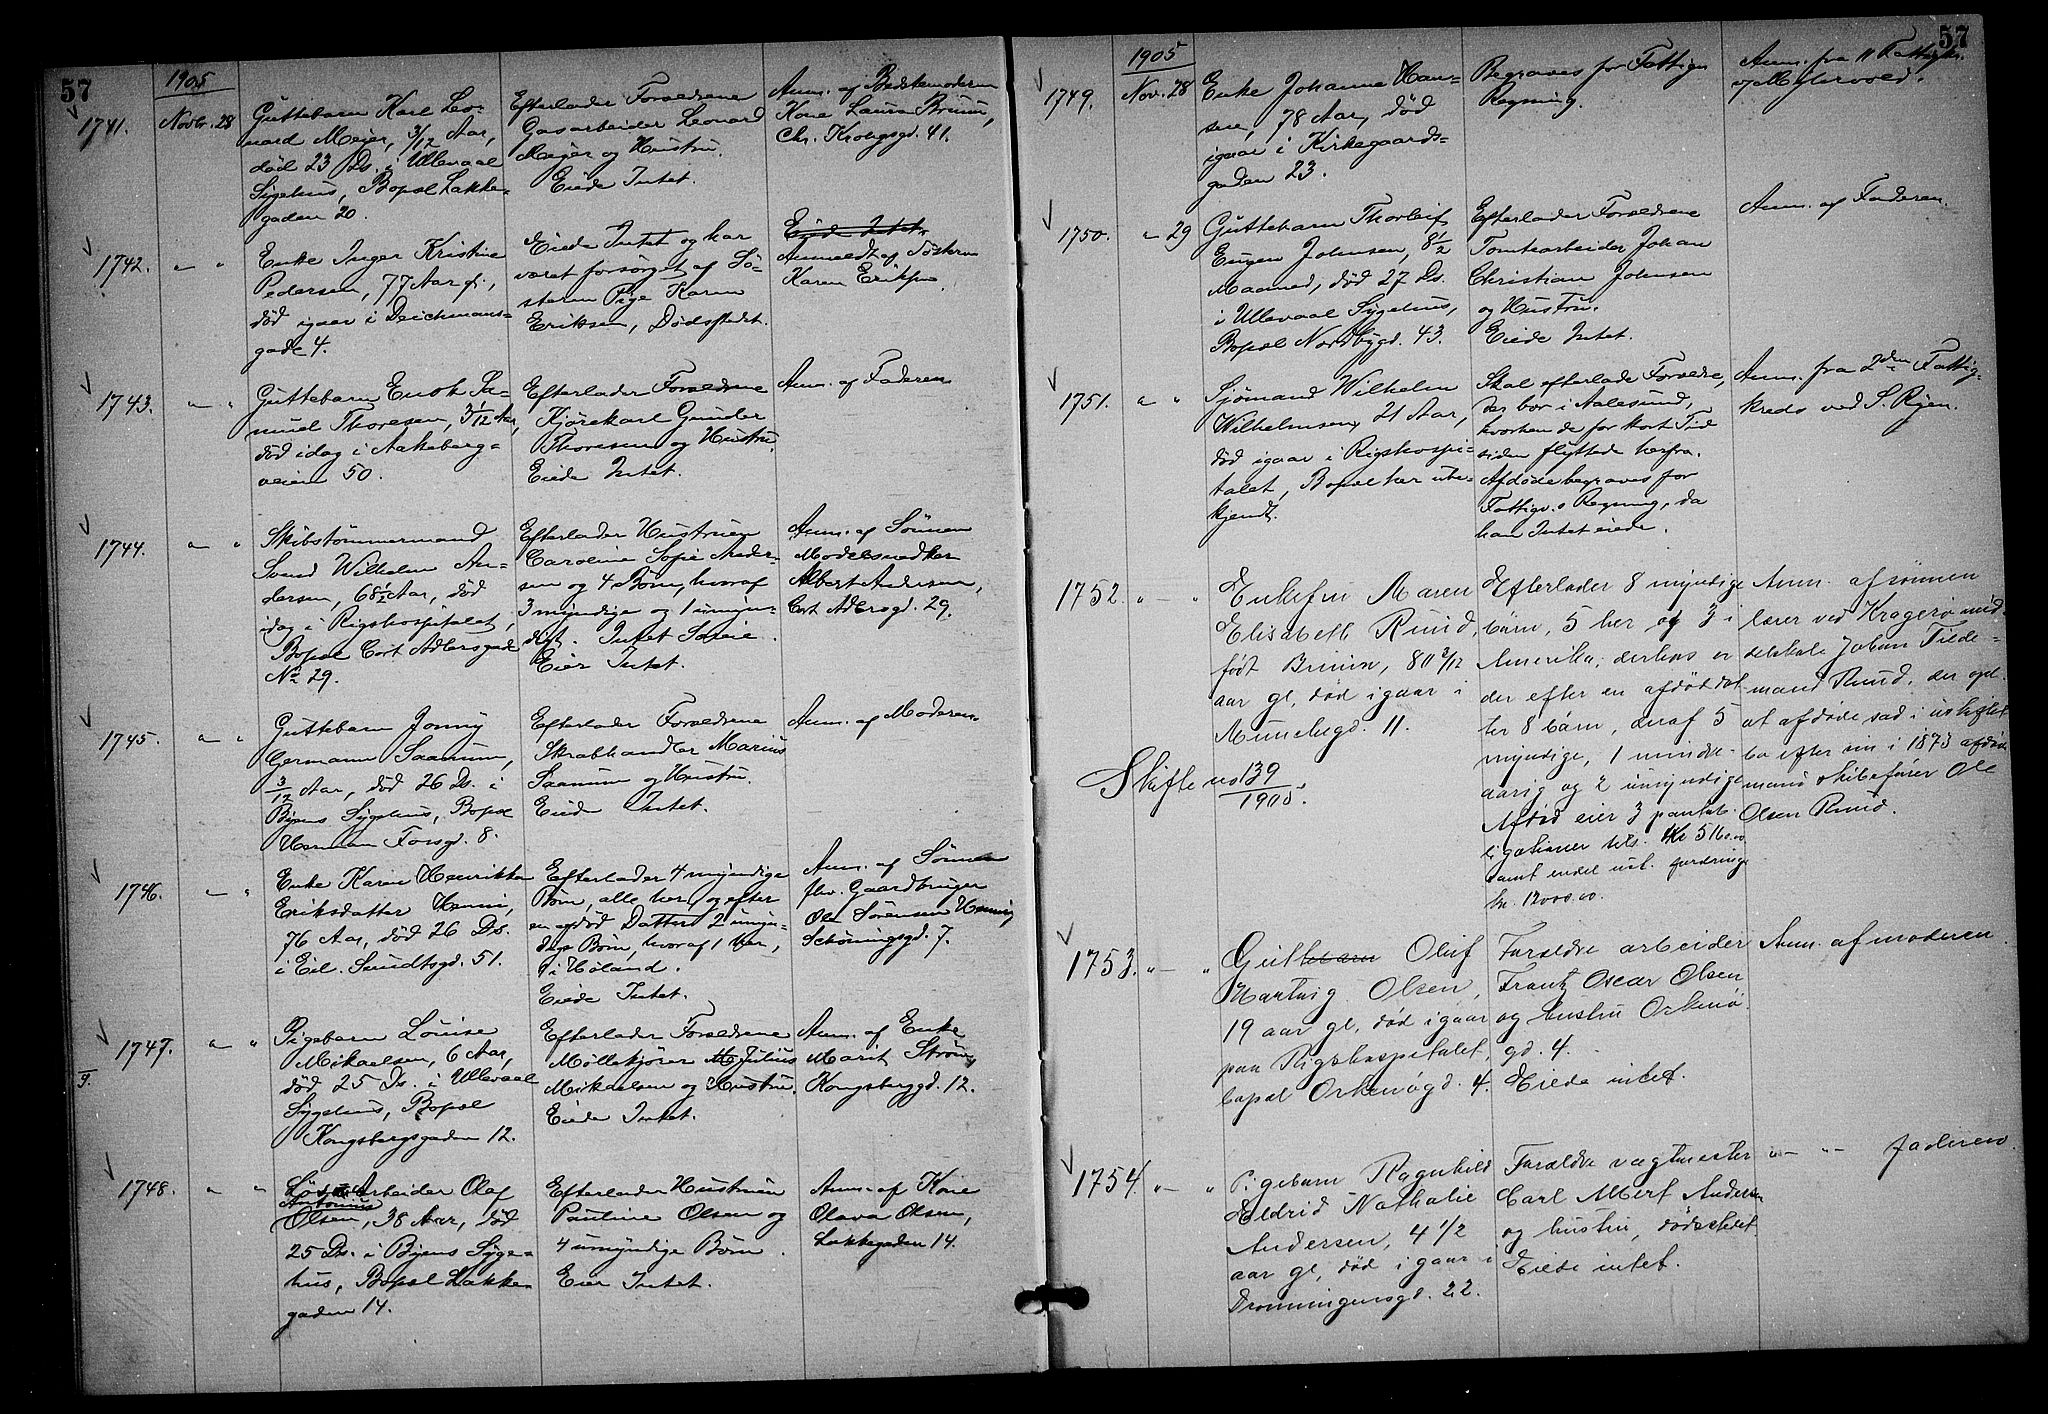 57
1905
1741.
Novbr. 28
Guttebarn Karl Leo-
nard Meyer, 3/12 Aar,
død 23 Ds. i Ullevaal
Sygehus, Bopæl Lakke-
gaden 20.
Efterlader Forældrene
Gasarbeider Leonard
Meyer og Hustru.
Eiede Intet.
Anm. af Bedstemoderen
Kone Laura Bruun,
Chr. Krohgsgd. 41.
1742.
" "
Enke Inger Kristine
Pedersen, 77 Aar gl.,
død igaar i Deichmans-
gade 4.
Eiede Intet og har
været forsørget af Sø-
steren Pige Karen
Eriksen, Dødsstedet.
Eiede Intet.
Anmeldt af Søsteren
Karen Eriksen
1743.
" "
Guttebarn Enok Sa-
muel Thoresen, 3/12 Aar,
død idag i Aakeberg-
veien 50.
Efterlader Forældrene
Kjørekarl Gunder
Thoresen og Hustru.
Eiede Intet.
Anm. af Faderen
1744.
" "
Skibstømmermand
Svend Wilhelm An-
dersen, 68 1/2 Aar, død
idag i Rigshospitalet,
Bopæl Cort Adlersgade
No 29.
Efterlader Hustruen
Caroline Sofie Ander-
sen og 4 Børn, hvoraf
3 myndige og 1 umyn-
digt. Intet Særeie.
Eier Intet.
Anm. af Sønnen
Modelsnedker
Albert Andersen,
Cort Adlersgd. 29.
1745.
" "
Guttebarn Jonny
Germann Saanum,
3/12 Aar, død 26 Ds. i
Byens Sygehus, Bopæl
Herman Fossgd. 8.
Efterlader Forældrene
Skrabhandler Marius
Saanum og Hustru.
Eiede Intet.
Anm. af Moderen.
1746.
" "
Enke Karen Henrikka
Eriksdatter Henni,
76 Aar, død 26 Ds.
i Eil. Sundtsgd. 51.
Efterlader 4 myndige
Børn, alle her, og efter
en afdød Datter 2 umyn-
dige Børn, hvoraf 1 her,
1 i Høland.
Eiede Intet.
Anm. af Sønnen
fhv. Gaardbruger
Ole Sørensen Henni
Schøningsgd. 7.
1747.
" "
Pigebarn Louise
Mikaelsen, 6 Aar,
død 25 Ds. i Ullevaal
Sygehus, Bopæl
Kongsbergsgaden 12.
Efterlader Forældrene
Møllekjører Julius
Mikaelsen og Hustru.
Eiede Intet.
Anm. af Enke
Marit Strøm,
Kongsberggd. 12.
1748.
" "
Løsarbeider Olaf
Antonius
Olsen, 38 Aar, død
25 Ds. i Byens Syge-
hus, Bopæl Lakke-
gaden 14.
Efterlader Hustruen
Pauline Olsen og
4 umyndige Børn.
Eier Intet.
Anm. af Kone
Olava Olsen,
Lakkegaden 14.
57
1905
1749.
Nov. 28
Enke Johanne Han-
sen, 78 Aar, død
igaar i Kirkegaards-
gaden 23.
Begraves for Fattigv.
Regning.
Anm. fra 11 Fattigkr.
v/ Myhrvold.
1750.
" 29
Guttebarn Thorleif
Eugen Johnsen, 8 1/2
Maaned, død 27 Ds.
i Ullevaal Sygehus,
Bopæl Nordbygd. 43.
Efterlader Forældrene
Tomtearbeider Johan
Christian Johnsen
og Hustru.
Eiede Intet.
Anm. af Faderen.
1751.
" "
Sjømand Wilhelm
Wilhelmsen, 21 Aar,
død igaar i Rigshospi-
talet, Bopæl her ube-
kjendt.
Skal efterlade Forældre,
der bor i Aalesund,
hvorhen de for kort Tid
siden flyttede herfra.
Afdøde begraves for
Fattigv.s Regning, da
han Intet eiede.
Anm. fra 2den Fattig-
kreds ved S. Ryen.
1752.
" "
Enkefru Maren
Elisabeth Ruud,
født Bruun, 80 3/12
aar gl., død igaar i
Munchsgd. 11.
Skifte no 139
1905.
Efterlader 8 myndige
børn, 5 her og 3 i
Amerika; derhos er
der efter en afdød dat-
ter 8 børn, deraf 5
myndige, 1 mindre-
aarig og 2 umyndige
Afdød eier 3 pantob-
ligationer tils. Kr 5160.00
samt endel ust. fordringer
kr. 12000.00.
Anm. af sønnen
lærer ved Kragerø mid-
delskole Johan Tide-
mand Ruud, der opl.
at afdøde sad i uskiftet
bo efter sin i 1873 afdøde
mand Skibsfører Ole
Olsen Ruud.
1753.
" "
Guttebarn Oluf
Hartvig Olsen,
19 aar gl., død igaar
paa Rigshospitalet,
bopæl Orknøgd. 4.
Forældre arbeider
Frantz Oscar Olsen
og hustru Orknø-
gd. 4.
Eiede intet.
Anm. af moderen.
1754.
" "
Pigebarn Ragnhild
Eldrid Nathalie
Andersen, 4 1/2
aar gl., død igaar i
Dronningensgd. 22.
Forældre vægtmester
Carl Albert Andersen
og hustru, dødsstedet.
Eiede intet.
" " faderen